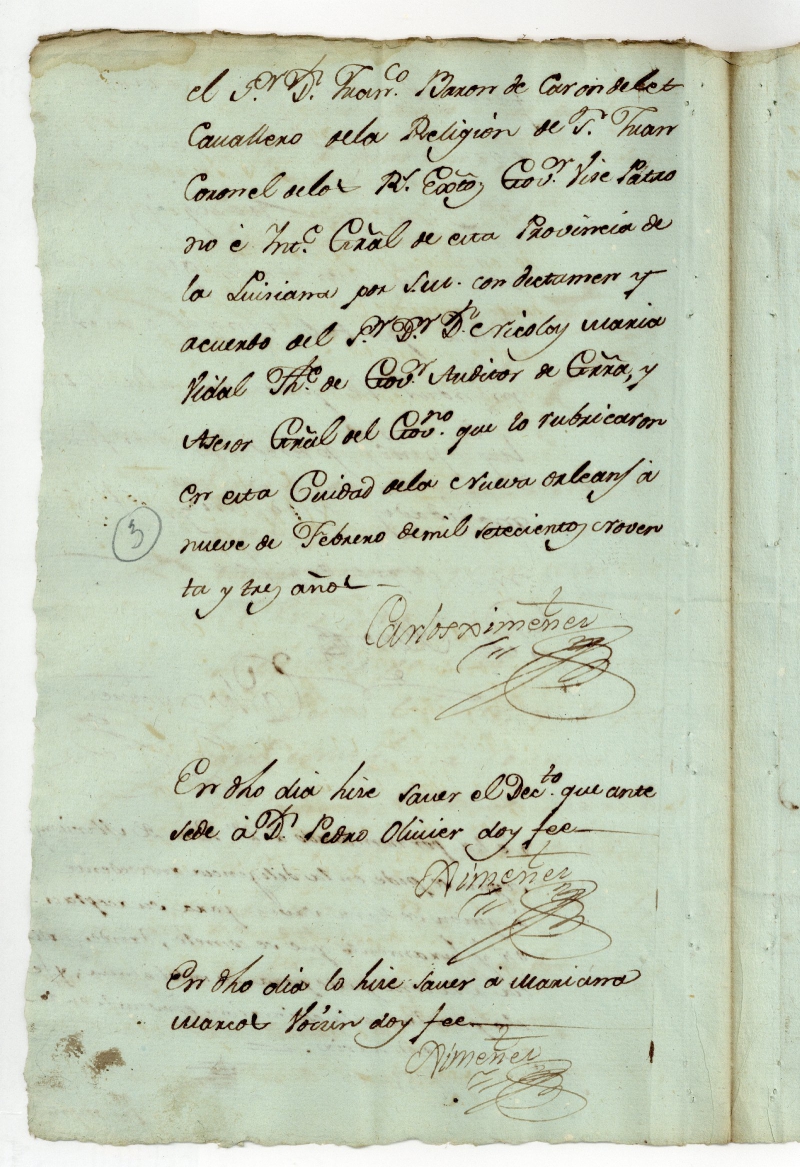 el S.ʳ D.ⁿ Fran.ᶜᵒ Baron de Carondelet
Cavallero dela Religion de S.ⁿ Juan
Coronel delos R.ˢ Exᵗᵒˢ Gov.ʳ Vise Patro
no é Int.ᵉ Gral de esta Provincia de
la Luisiana por S.M. con dictamen y
acuerdo del S.ʳ D.ʳ D.ⁿ Nicolas Maria
Vidal Th.ᵉ de Gov.ʳ Auditor de Grra, y
Asesor Gral del Gov.ⁿᵒ que lo rubricaron
en esta Ciudad dela Nueva Orleans à
nueve de Febrero demil setecientos noven
ta y tres años
3
Carlos Ximenez
En dho dia hise saver el Dec.ᵗᵒ que ante
sede à D.ⁿ Pedro Olivier doy fee
Ximenez
En dho dia lo hise saver à Mariana
Marcos doy fee
Ximenez